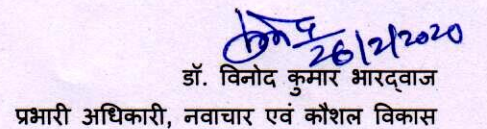 26/2/2020
डॉ. विनोद कुमार भारद्वाज
प्रभारी अधिकारी, नवाचार एवं कौशल विकास